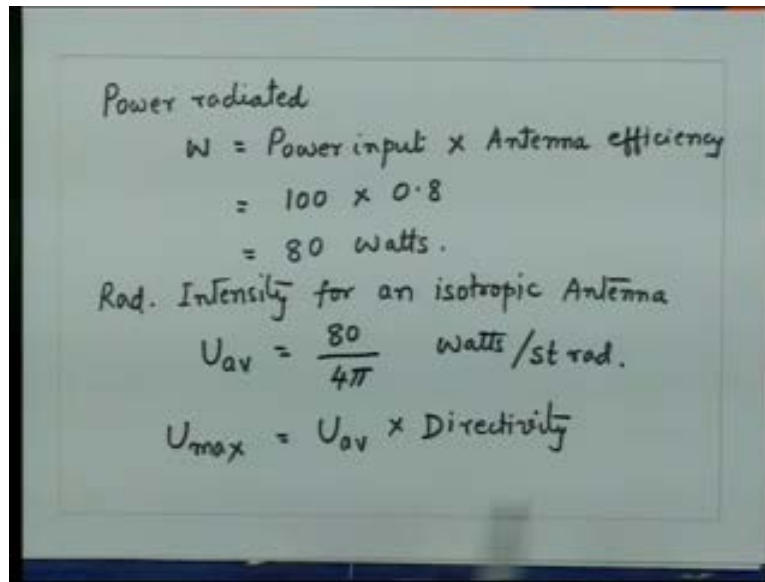 Power radiated
W = Power input × Antenna efficiency
= 100 × 0.8
= 80 watts.
Rad. Intensity for an isotropic Antenna
Uav = 80/4π watts/st rad.
Umax = Uav × Directivity